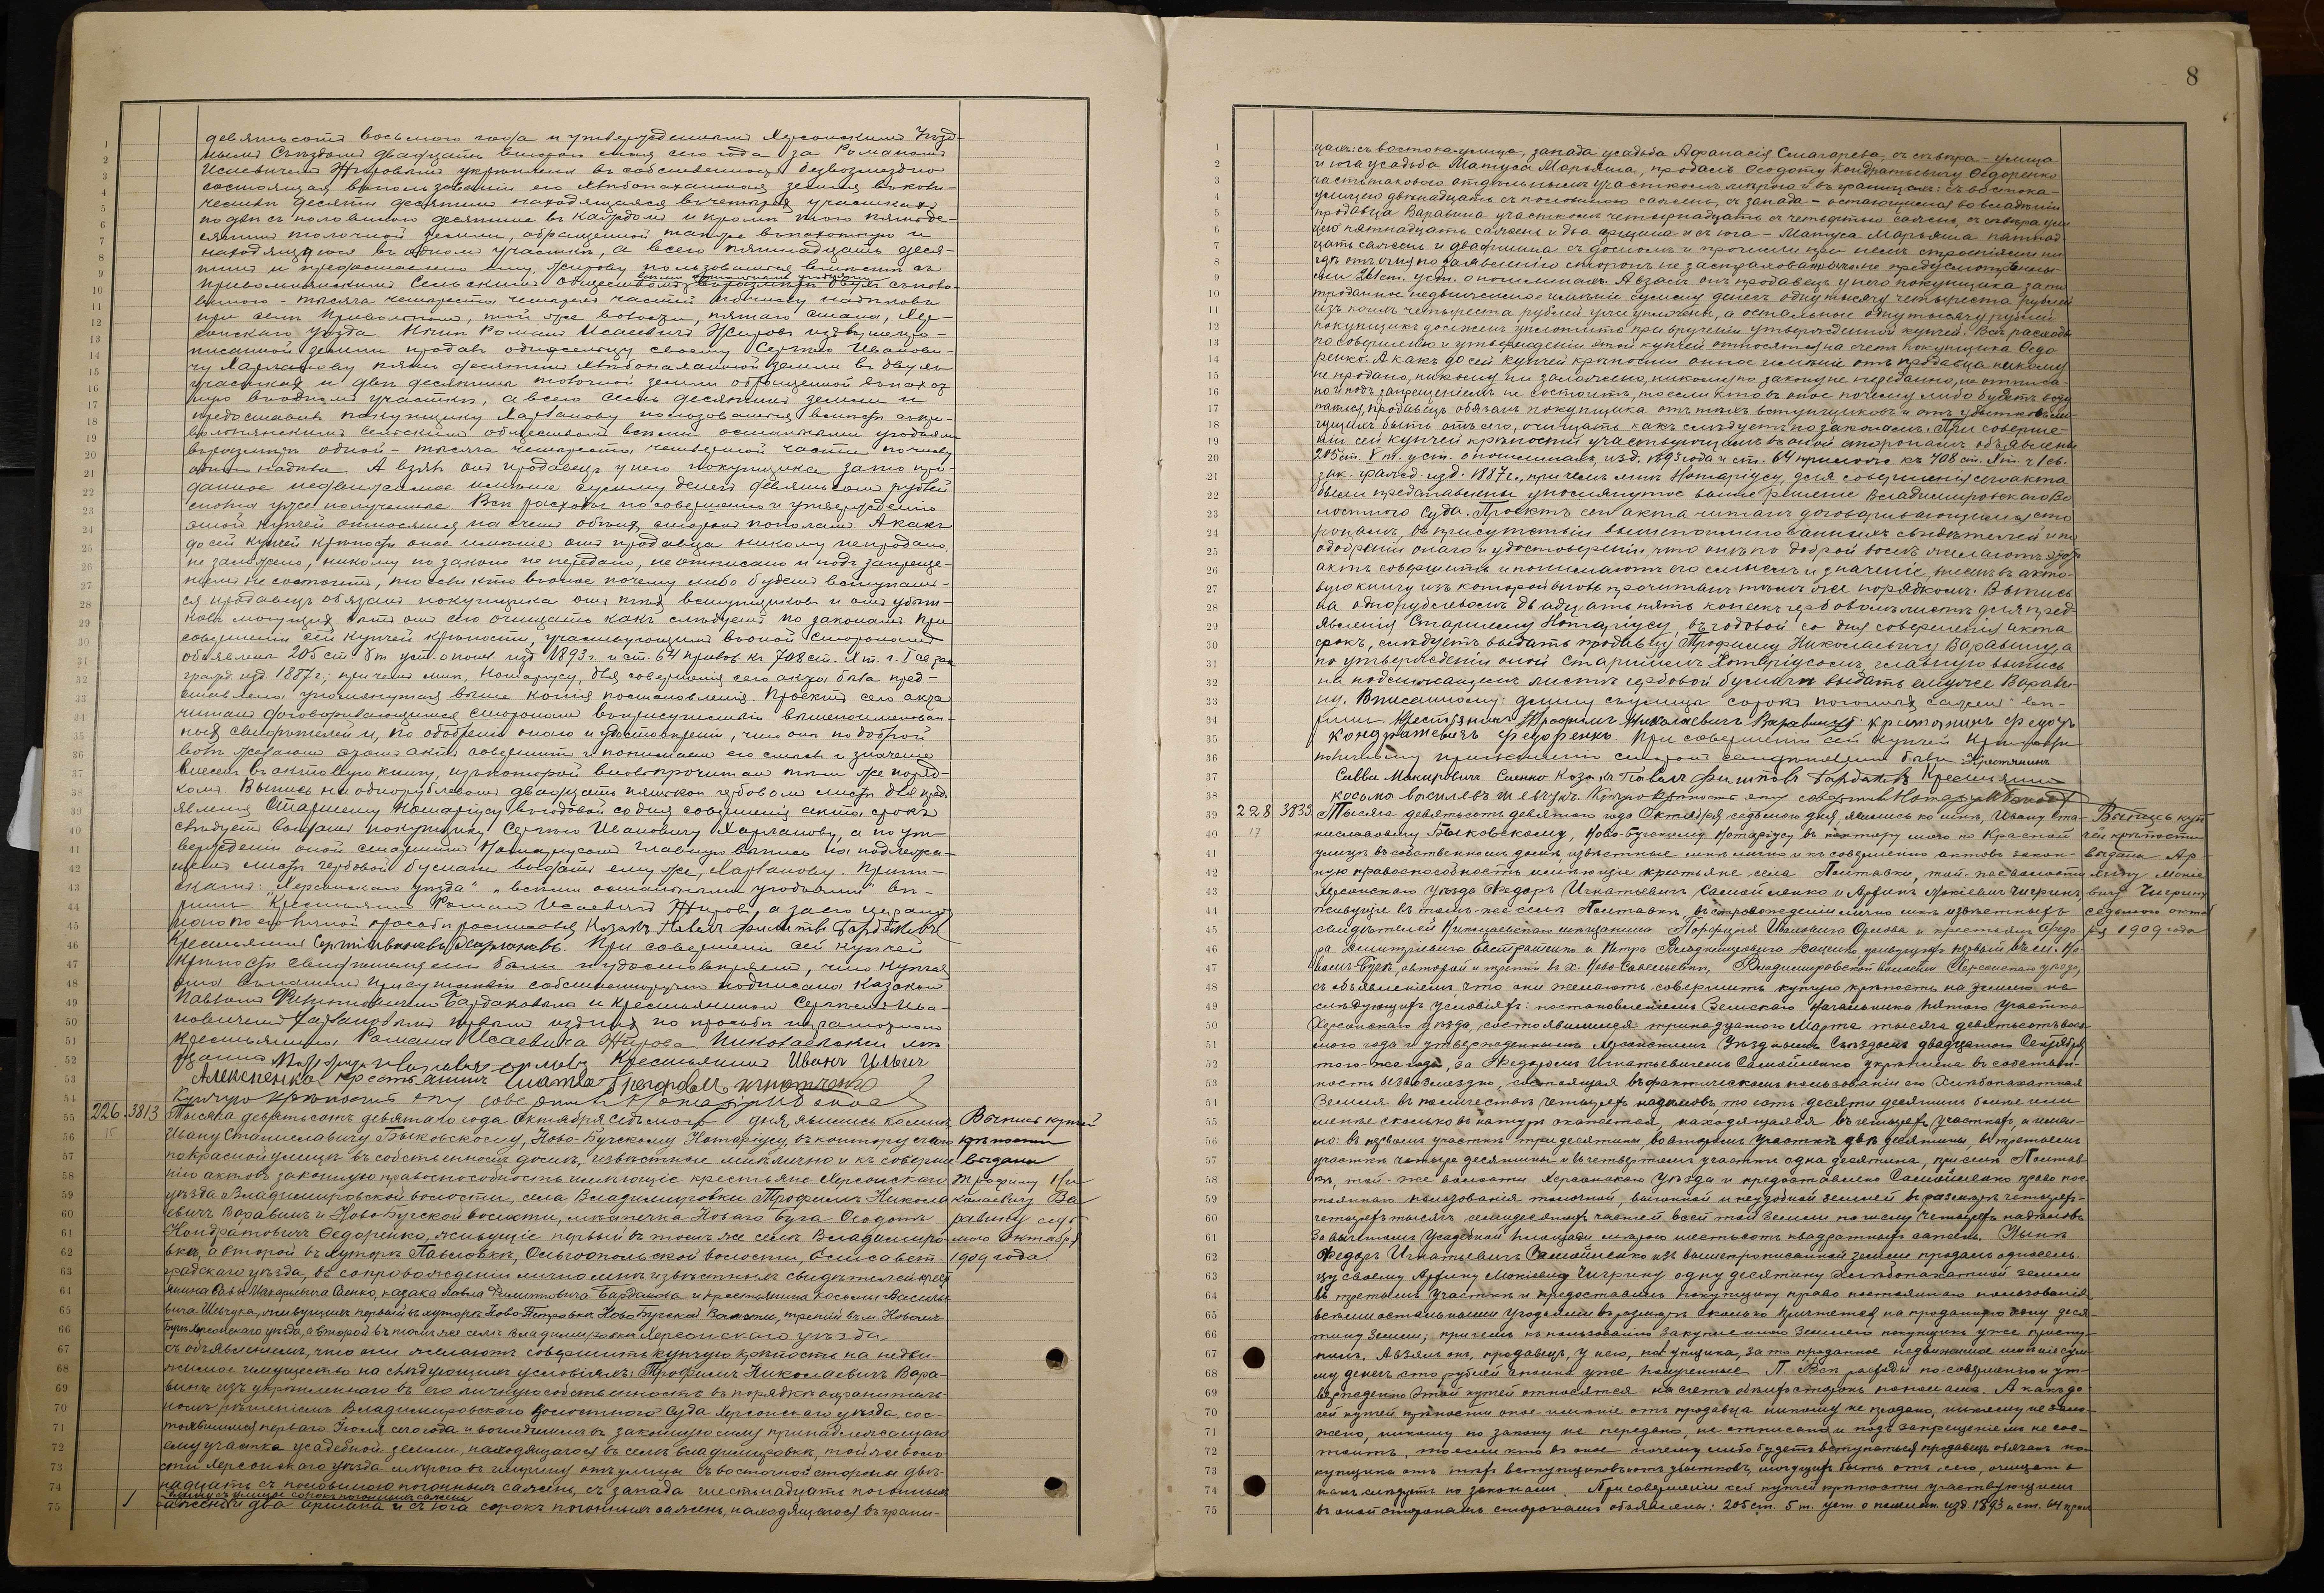 девятьсотъ восьмого года и утвержденнымъ Херсонскимъ Уѣзд-
нымъ Съѣздомъ двадцать второго сего года за Романомъ
Исаевичемъ Жировымъ укрѣплена въ собственность безвозмездно
состоящая въ пользованіи его хлѣбопахатная земля въ коли-
чествѣ десяти десятинъ находящаяся въ четырехъ участкахъ
по двѣ съ половиною десятины въ каждомъ и кромѣ того пять де-
сятинъ толочной земли, обращенной также въ пахотную и
находящуюся въ одномъ участкѣ, а всего пятнадцать деся-
тинъ и предоставлено ему, Жирову пользоваться вмѣстѣ съ
при селѣ Привольномъ, той же волости, пятаго стана, Хер-
сонскаго уѣзда. Нынѣ Романъ Исаевичъ Жировъ изъ вышепро-
писанной земли продалъ односельцу своему Сергѣю Иванови-
чу Харланову пять десятинъ хлѣбопахатной земли въ двухъ
участкахъ и двѣ десятины толочной земли обращенной въ пахот-
ную въ одномъ участкѣ, а всего семь десятинъ земли и
предоставилъ покупщику Харланову пользоваться вмѣстѣ съ при-
вольнянскимъ сельскимъ обществомъ всѣми остальными угодьями
въ размѣрѣ одной - тысяча четыреста четвертой части по числу
одного надѣла. А взялъ онъ продавецъ у него покупщика за то про-
данное недвижимое имѣніе сумму денегъ девятьсотъ рублей
сполна уже полученные. Всѣ расходы по совершенію и утвержденію
этой купчей относятся на счетъ обѣихъ сторонъ пополамъ. А какъ
до сей купчей крѣпости оное имѣніе отъ продавца никому не продано,
не заложено, никому по закону не передано, не отписано и подъ запреще-
ніемъ не состоитъ, то если кто въ оное почему либо будетъ вступать-
ся продавецъ обязанъ покупщика отъ тѣхъ вступщиковъ и отъ убыт-
ковъ могущихъ быть отъ сего очищать какъ слѣдуетъ по законамъ. При
совершеніи сей купчей крѣпости, участвующимъ въ оной сторонамъ
объявлены 205 ст. V т. уст. о пошл. изд. 1893 г. и ст. 64 прилож. къ 708 ст. X т. ч. I св. зак.
гражд. изд. 1887 г.; при чемъ мнѣ, Нотаріусу, для совершенія сего акта была пред-
ставлена упомянутая выше копія постановленія. Проектъ сего акта
читанъ договаривающимся сторонамъ въ присутствіи вышепоименован-
ныхъ свидѣтелей и, по одобреніи онаго и удостовѣреніи, что они по доброй
волѣ желаютъ этотъ актъ совершить и понимаютъ его смыслъ и значеніе
внесенъ въ актовую книгу, изъ которой вновь прочитанъ тѣмъ же поряд-
комъ. Выпись на однорублевомъ двадцать пять коп. гербовомъ листѣ для предъ-
явленія Старшему Нотаріусу въ годовой со дня совершенія акта, срокъ
слѣдуетъ выдать покупщику Сергѣю Ивановичу Харланову, а по ут-
вержденіи оной старшимъ Нотаріусомъ главную выпись на подлежа-
щемъ листѣ гербовой бумаги выдать ему же, Харланову. Припи-
санное: "Херсонскаго уѣзда" и "всѣми остальными угодьями" вѣ-
рить. Крестьянинъ Романъ Исаевичъ Жировъ, а за его неграмот-
ного по его личной просьбѣ росписался Козакъ Павелъ Филиповъ Бардаковъ
Крестьянинъ Сергѣй Ивановъ Харлановъ. При совершеніи сей купчей
крѣпости свидѣтелями были и удостовѣряемъ, что купчая
эта въ нашемъ присутствіи собственноручно подписана Казакомъ
Павломъ Филиповичемъ Бардаковымъ и крестьяниномъ Сергѣемъ Ива-
новичемъ Харлановымъ первымъ изъ нихъ по просьбѣ неграмотнаго
крестьянина Романа Исаевича Жирова. Николаевскій мѣ-
щанинъ Порфирій Ивановъ Орловъ Крестьянинъ Иванъ Ильичъ
Купчую крѣпость сію совершилъ Нотаріусъ
226 3813 Тысяча девятьсотъ девятаго года Октября седьмого дня, явились ко мнѣ, Выпись купчей
15 Ивану Станиславичу Быковскому, Ново-Бугскому Нотаріусу, въ контору мою крѣпости
по Красной улицѣ въ собственномъ домѣ, извѣстные мнѣ лично и къ соверше- выдана
нію актовъ законную правоспособность имѣющіе крестьяне Херсонскаго Трофиму Ни-
уѣзда Владимировской волости, села Владимировки Трофимъ Никола- колаевичу Ва-
евичъ Варавинъ и Ново-Бугской волости, мѣстечка Новаго Буга Ѳеодотъ равину седь-
Кондратовичъ Ѳедоренко, живущіе первый въ томъ же селѣ Владимиро- мого октября
вкѣ, а второй въ хуторѣ Павловкѣ, Ольгопольской волости, Елисавет- 1909 года.
градскаго уѣзда, въ сопровожденіи лично мнѣ извѣстныхъ свидѣтелей крест-
янина Саввы Макаровича Саенко, казака Павла Филиповича Бардакова и крестьянина Косьмы Василь-
вича Шевчука, живущихъ первый въ хуторѣ Ново-Петровкѣ Ново-Бугской Волости, третій въ м. Новомъ-
Бугѣ Херсонскаго уѣзда, а второй въ томъ же селѣ Владимировкѣ Херсонскаго уѣзда
съ объявленіемъ, что они желаютъ совершить купчую крѣпость на недви-
жимое имущество на слѣдующихъ условіяхъ: Трофимъ Николаевичъ Вара-
винъ изъ укрѣпленнаго въ его личную собственность въ порядкѣ охранитель-
номъ рѣшеніемъ Владимировскаго Волостного Суда Херсонскаго уѣзда, сос-
тоявшимся перваго Іюля сего года и вошедшимъ въ законную силу принадлежащаго
ему участка усадебной земли, находящагося въ селѣ Владимировкѣ, той же воло-
сти Херсонскаго уѣзда мѣрою въ ширину отъ улицы съ восточной стороны двѣ-
надцать съ половиною погонныхъ саженъ, съ запада шестнадцать погонныхъ
длину съ улицы сорокъ погонныхъ саженъ
саженъ и два аршина и съ юга сорокъ погонныхъ саженъ, находящагося въ грани-
8
цахъ: съ востока-улица, запада усадьба Афанасія Смагарева, съ сѣвера - улица
и юга усадьба Матуса Марьяша, продалъ Ѳеодоту Кондратьевичу Ѳедоренко
часть таковаго отдѣльнымъ участкомъ мѣрою и въ границахъ: съ востока-
улицею двѣнадцать съ половиною саженъ, съ запада - остающимся во владѣніи
продавца Варавина участкомъ четырнадцать съ четвертью саженъ, съ сѣвера ули-
цею пятнадцать саженъ и два аршина и съ юга - Матуса Марьяша пятнад-
цать саженъ и два аршина съ домомъ и прочими при немъ строеніями ни-
гдѣ отъ огня по заявленію сторонъ не застрахованными не предусмотрѣнны-
ми 261 ст. уст. о пошлинахъ. А взялъ онъ продавецъ у него покупщика за то
проданное недвижимое имѣніе сумму денегъ одну тысячу четыреста рублей
изъ коихъ четыреста рублей уже уплочены, а остальные одну тысячу рублей
покупщикъ долженъ уплотить при врученіи утвержденной купчей. Всѣ расходы
по совершенію и утвержденію этой купчей относятся на счетъ покупщика Ѳедо-
ренко. А какъ до сей купчей крѣпости оное имѣніе отъ продавца никому
не продано, никому ни заложено, никому по закону не передано, не отписа-
но и подъ запрещеніемъ не состоитъ, то если кто въ оное почему либо будетъ всту-
паться, продавецъ обязанъ покупщика отъ тѣхъ вступщиковъ и отъ убытковъ мо-
гущихъ быть отъ сего, очищать какъ слѣдуетъ по законамъ. При соверше-
ніи сей купчей крѣпости участвующимъ въ оной сторонамъ объявлены
205 ст. V т. уст. о пошлинахъ, изд. 1893 года и ст. 64 прилож. къ 708 ст. X т. ч. 1 св.
зак. гражд. изд. 1887 г., при чемъ мнѣ Нотаріусу, для совершенія сего акта
были представлены упомянутое выше рѣшеніе Владимировскаго Во-
лостного Суда. Проектъ сего акта читанъ договаривающимся сто-
ронамъ, въ присутствіи вышепоименованныхъ свидѣтелей и по
одобреніи онаго и удостовѣреніи, что они по доброй волѣ желаютъ этотъ
актъ совершить и понимаютъ его смыслъ и значеніе, внесенъ въ акто-
вую книгу изъ которой вновь прочитанъ тѣмъ же порядкомъ. Выпись
на однорублевомъ двадцать пять копеек. гербовомъ листѣ для предъ-
явленія Старшему Нотаріусу, въ годовой со дня совершенія акта
срокъ, слѣдуетъ выдать продавцу Трофиму Николаевичу Варавину, а
по утвержденіи оной Старшимъ Нотаріусомъ, главную выпись
на подлежащемъ листѣ гербовой бумаги выдать ему же Варави-
ну. Вписанному: "длину съ улицы сорокъ погонныхъ саженъ" вѣ-
рить. Крестьянинъ Трофимъ Николаевичъ Варавинъ. Крестьянинъ Федотъ
Кондратьевичъ Федоренко. При совершеніи сей купчей крѣпости
по личному приглашенію сторонъ свидѣтелями были Крестьянинъ
Савва Макаровичъ Саенко Козакъ Павелъ Филиповъ Бардаковъ Крестьянинъ
Косьма Василевъ Шевчукъ. Купчую крѣпость сію совершилъ Нотаріусъ
228 3833 Тысяча девятьсотъ девятого года Октября седьмого дня, явились ко мнѣ, Ивану Ста- Выпись куп-
17 ниславовичу Быковскому, Ново-Бугскому Нотаріусу въ контору мою по Красной чей крѣпости
улицѣ въ собственномъ домѣ, извѣстные мнѣ лично и къ совершенію актовъ закон- выдана Ар-
ную правоспособность имѣющіе крестьяне села Полтавки, той-же волости хипу Мокіе-
Херсонскаго Уѣзда Федоръ Игнатьевичъ Самойленко и Архипъ Мокіевичъ Чигринъ, вичу Чигрину
живущіе въ томъ-же селѣ Полтавкѣ, въ сопровожденіи лично мнѣ извѣстныхъ седьмого октяб-
свидѣтелей Николаевскаго мѣщанина Порфирія Ивановича Орлова и крестьянъ Федо- ря 1909 года
ра Дмитріевича Евстратенко и Петра Владимировича Лаценко живущихъ первый въ м. Но-
вомъ-Бугѣ, а второй и третій въ х. Ново-Савельевкѣ, Владимировской волости Херсонскаго уѣзда,
съ объявленіемъ, что они желаютъ совершить купчую крѣпость на землю на
слѣдующихъ условіяхъ: постановленіемъ Земскаго Начальника пятого участка
Херсонскаго уѣзда, состоявшимся тринадцатого Марта тысяча девятьсотъ вось-
мого года и утвержденнымъ Херсонскимъ Уѣзднымъ Съѣздомъ двадцатого Сентября
того-же года, за Федоромъ Игнатьевичемъ Самойленко укрѣплена въ собствен-
ность безвозмездно, состоящая въ фактическомъ пользованіи его Хлѣбопахатная
Земля въ количествѣ четырехъ надѣловъ, то есть десяти десятинъ болѣе или
менѣе сколько въ натурѣ окажется, находящаяся въ четырехъ участкахъ, а имен-
но: въ первомъ участкѣ три десятины во второмъ участкѣ двѣ десятины, въ третьемъ
участкѣ четыре десятины и въ четвертомъ участкѣ одна десятина, при селѣ Полтав-
кѣ, той-же волости Херсонскаго Уѣзда и предоставлено Самойленко право пос-
тояннаго пользованія толочной, выгонной и неудобной землей въ размѣрѣ четырехъ-
четырехъ тысячъ семидесятыхъ частей всей той земли по числу четырехъ надѣловъ
За вычетомъ усадебной площади мѣрою шестьсотъ квадратныхъ саженъ. Нынѣ
Федоръ Игнатьевичъ Самойленко изъ вышепрописанной земли продалъ односель-
цу своему Архипу Мокіевичу Чигрину одну десятину хлѣбопахатной земли
въ третьемъ участкѣ и предоставилъ покупщику право постояннаго пользованія
всѣми остальными угодьями въ размѣрѣ сколько причтется на проданную ему деся-
тину земли; причемъ къ пользованію закупленною землею покупщикъ уже присту-
пилъ. А взялъ онъ, продавецъ, у него, покупщика, за то проданное недвижимое имѣніе сум-
му денегъ сто рублей сполна уже полученные. П. Всѣ расходы по совершенію и ут-
вержденію этой купчей относятся на счетъ обѣихъ сторонъ пополамъ. А какъ до
сей купчей крѣпости оное имѣніе отъ продавца никому не продано, никому не зало-
жено, никому по закону не передано, не отписано и подъ запрещеніемъ не сос-
тоитъ, то если кто въ оное почему либо будетъ вступаться продавецъ обязанъ по-
купщика отъ тѣхъ вступщиковъ и отъ убытковъ, могущихъ быть отъ сего, очищать
какъ слѣдуетъ по законамъ. При совершеніи сей купчей крѣпости участвующимъ
въ оной сторонамъ сторонамъ объявлены: 205 ст. 5 т. уст. о пошлин. изд. 1893 и ст. 64 прил.